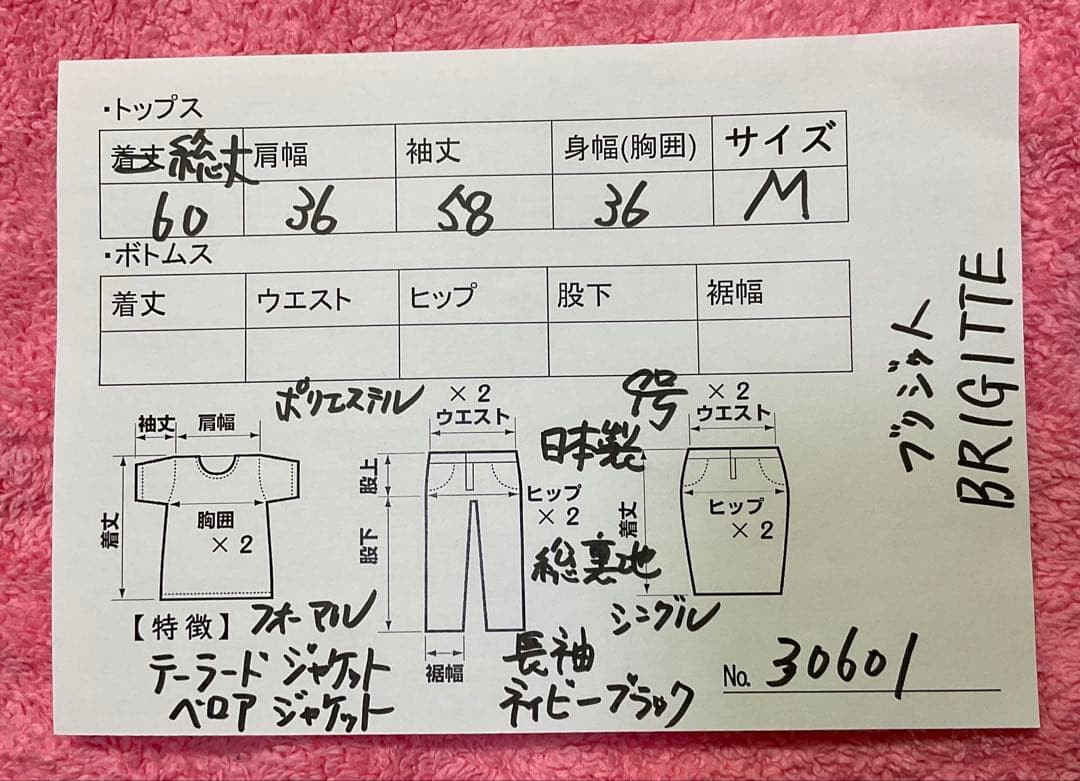 ・トップス
着丈 総丈 肩幅 袖丈 身幅(胸囲) サイズ
60 36 58 36 M
・ボトムス
着丈 ウエスト ヒップ 股下 裾幅
ブリジット
BRIGITTE
ポリエステル
袖丈 肩幅
着丈
胸囲
×2
×2
ウエスト
股上
股下
ヒップ
×2
裾幅
9号
日本製
×2
ウエスト
着丈
ヒップ
×2
総裏地
シングル
【特徴】フォーマル
テーラード ジャケット
ベロア ジャケット
長袖
ネイビーブラック
No. 30601